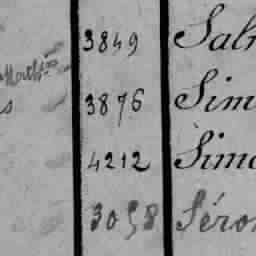 3849 Sal
3876 Sim
s
4212 Simo
3058 Séro